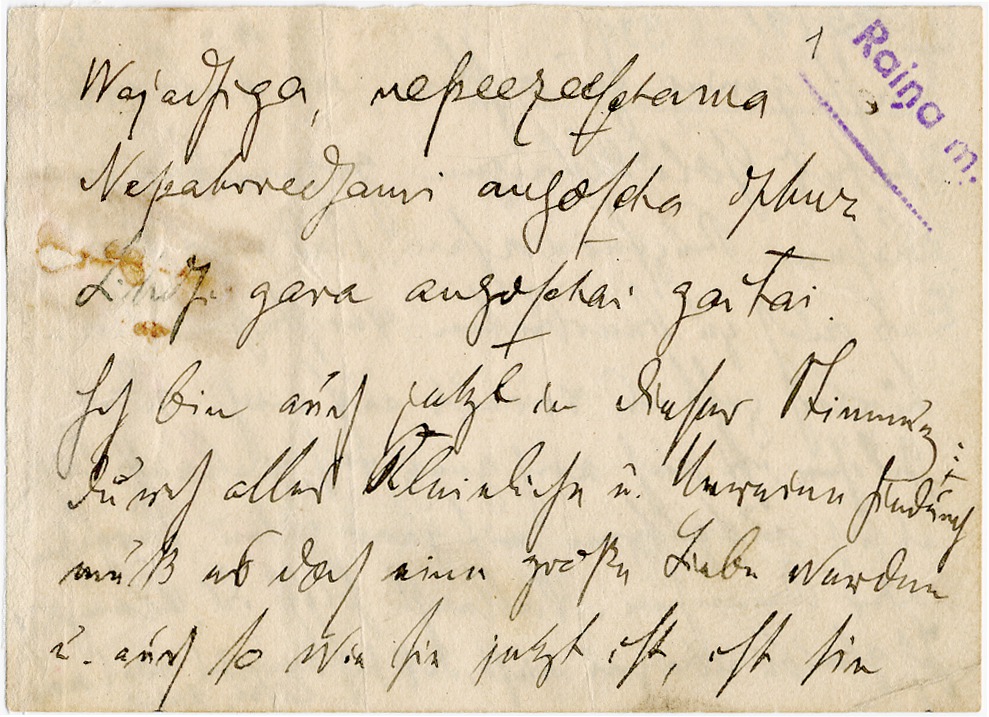 1
Raiņa m.
Wajadſiga, nepeezeeſchama
Nepahrredſami augoſcha dſihwe
Lihdſi gara augoſchai gaitai.
Ich bin auch jetzt in dieser Stimmung:
durch alles Kleinliche u. Unreine hindurch
muß es doch eine große Liebe werden
u. auch so wie sie jetzt ist, ist sie